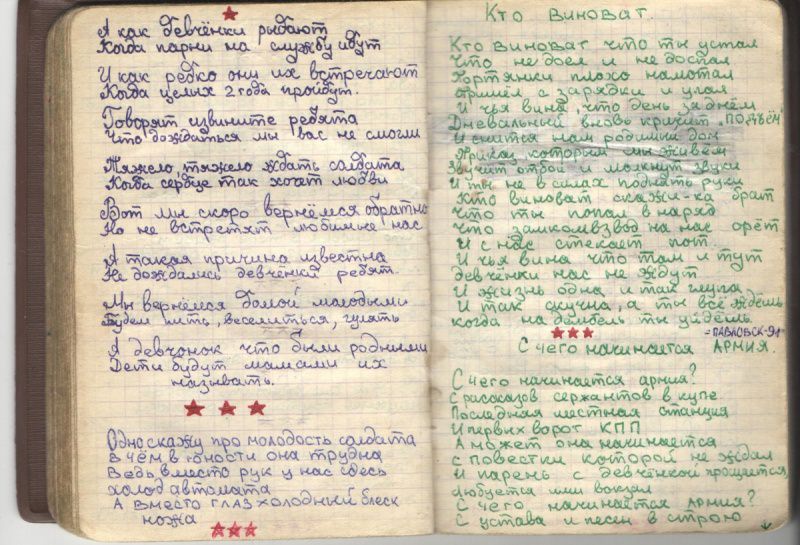 А как девчёнки рыдают
Когда парни на службу идут
И как редко они их встречают
Когда целых 2 года пройдут.
Говорят извините ребята
Что дождаться мы вас не смогли
Тяжело, тяжело ждать солдата
Когда сердце так хочет любви
Вот мы скоро вернёмся обратно
Но не встретят любимые нас
А такая причина известна
Не дождались девчёнки ребят.
Мы вернёмся домой молодыми
Будем пить, веселиться, гулять
А девчонок что были родными
Дети будут мамами их
называть.
Одно скажу про молодость солдата
В чём в юности она трудна
Ведь вместо рук у нас здесь
холод автомата
А вместо глаз холодный блеск
ножа
Кто виноват.
Кто виноват что ты устал
Что не доел и не доспал
Портянки плохо намотал
Пришёл с зарядки и упал
И чья вина, что день за днём
Дневальный вновь кричит "ПОДЪЁМ"
И снится нам родимый дом
Приказ которым мы живём
Звучит отбой и молкнут звуки
И ты не в силах поднять руки
Кто виноват скажи-ка брат
Что ты попал в наряд
Что замкомвзвод на нас орёт
И с нас стекает пот.
И чья вина что там и тут
Девчёнки нас не ждут
И жизнь одна и так глупа
И так скучна, а ты всё ждёшь
когда на дембель ты уйдёшь
=ПАВЛОВСК-91
С чего начинается АРМИЯ.
С чего начинается армия?
С рассказов сержантов в купе
Последняя местная станция
И первых ворот КПП
А может она начинается
С повестки которой не ждал
И парень с девчёнкой прощается
Любуется ими вокзал
С чего начинается Армия?
С устава и песен в строю